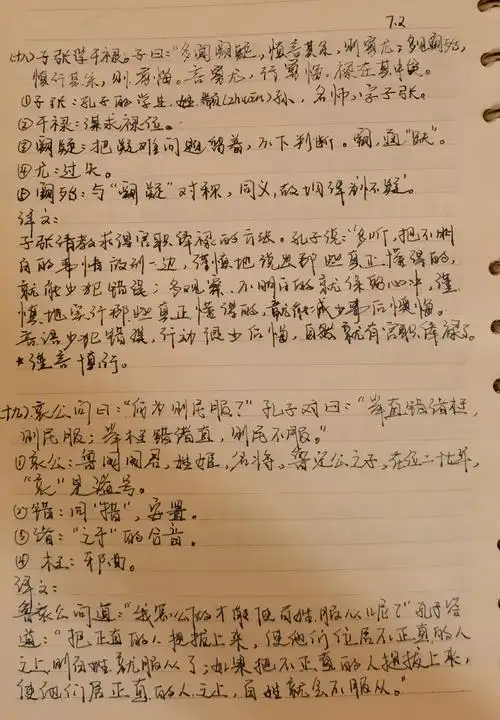 7.2
(十八)子张学干禄。子曰:“多闻阙疑,慎言其余,则寡尤;多见阙殆,
慎行其余,则寡悔。言寡尤,行寡悔,禄在其中矣。
①子张:孔子的学生,姓颛(zhuān)孙,名师,字子张。
②干禄:谋求禄位。
③阙疑:把疑难问题留着,不下判断。阙,通“缺”。
④尤:过失。
⑤阙殆:与“阙疑”对称,同义,故均译为不疑。
译文:
子张请教求得官职俸禄的方法。孔子说:“多听,把不明
白的事情放到一边,谨慎地说出那些真正懂得的,
就能少犯错误;多观察,不明白的就保留心中,谨
慎地实行那些真正懂得的,就能减少事后懊悔。
言语少犯错误,行动很少后悔,自然就有官职俸禄了。
*谨言慎行。
(十九)哀公问曰:“何为则民服?”孔子对曰:“举直错诸枉,
则民服;举枉错诸直,则民不服。”
①哀公:鲁国国君,姓姬,名将,鲁定公之子,在位二十七年,
“哀”是谥号。
②错:同“措”,安置。
③诸:“之于”的合音。
④枉:邪曲。
译文:
鲁哀公问道:“我怎么做才能使百姓服从呢?”孔子答
道:“把正直的人提拔上来,使他们位居不正直的人
之上,则百姓就服从了;如果把不正直的人提拔上来,
使他们居正直的人之上,百姓就会不服从。”